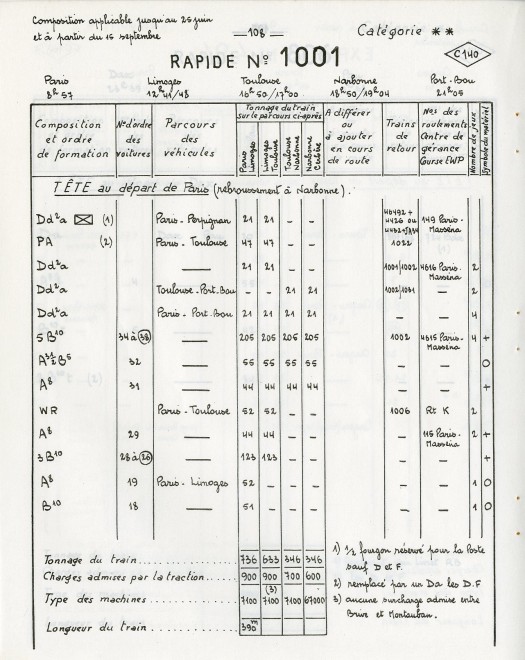 Composition applicable jusqu'au 25 juin
et à partir du 15 septembre
— 108 —
Catégorie **
RAPIDE N° 1001
C140
Paris Limoges Toulouse Narbonne Port-Bou
8h57 12h41/48 16h50/17h00 18h50/19h04 21h05
Composition et ordre de formation
N°s d'ordre des voitures
Parcours des véhicules
Tonnage du train sur le parcours ci-après
Paris Limoges
Limoges Toulouse
Toulouse Narbonne
Narbonne Cerbère
A différer ou à ajouter en cours de route
Trains de retour
N°s des roulements Centre de gérance
Nombre de jeux
Symbole du matériel
TÊTE au départ de Paris (rebroussement à Narbonne).
Dd²a (1) Paris-Perpignan 21 21 – – 149 Paris-Masséna
PA (2) Paris-Toulouse 47 47 – – 1022
Dd²a — 21 21 – – 1001/1002 4616 Paris-Masséna 2
Dd²a Toulouse-Port-Bou – – 21 21 1002/1031 — 2
Dd²a Paris-Port-Bou 21 21 21 21 — — 4
5 B10 34 à 38 — 205 205 205 205 1002 4615 Paris-Masséna 4 +
32 — 55 55 55 55 O
A8 31 — 44 44 44 44 +
WR Paris-Toulouse 52 52 – – 1006 Rt K 2
A8 29 — 44 44 – – 115 Paris-Masséna 2 +
3 B10 28 à 26 — 123 123 – – +
A8 19 Paris-Limoges 52 – 1 O
B10 18 — 51 – 1 O
Tonnage du train 736 633 346 346
Charges admises par la traction 900 900 700 600
(3)
Type des machines 7100 7100 7100 67000
Longueur du train 390m
1) 1/2 fourgon réservé pour la Poste
sauf D et F.
2) remplacé par un Da les D.F
3) aucune surcharge admise entre
Brive et Montauban.